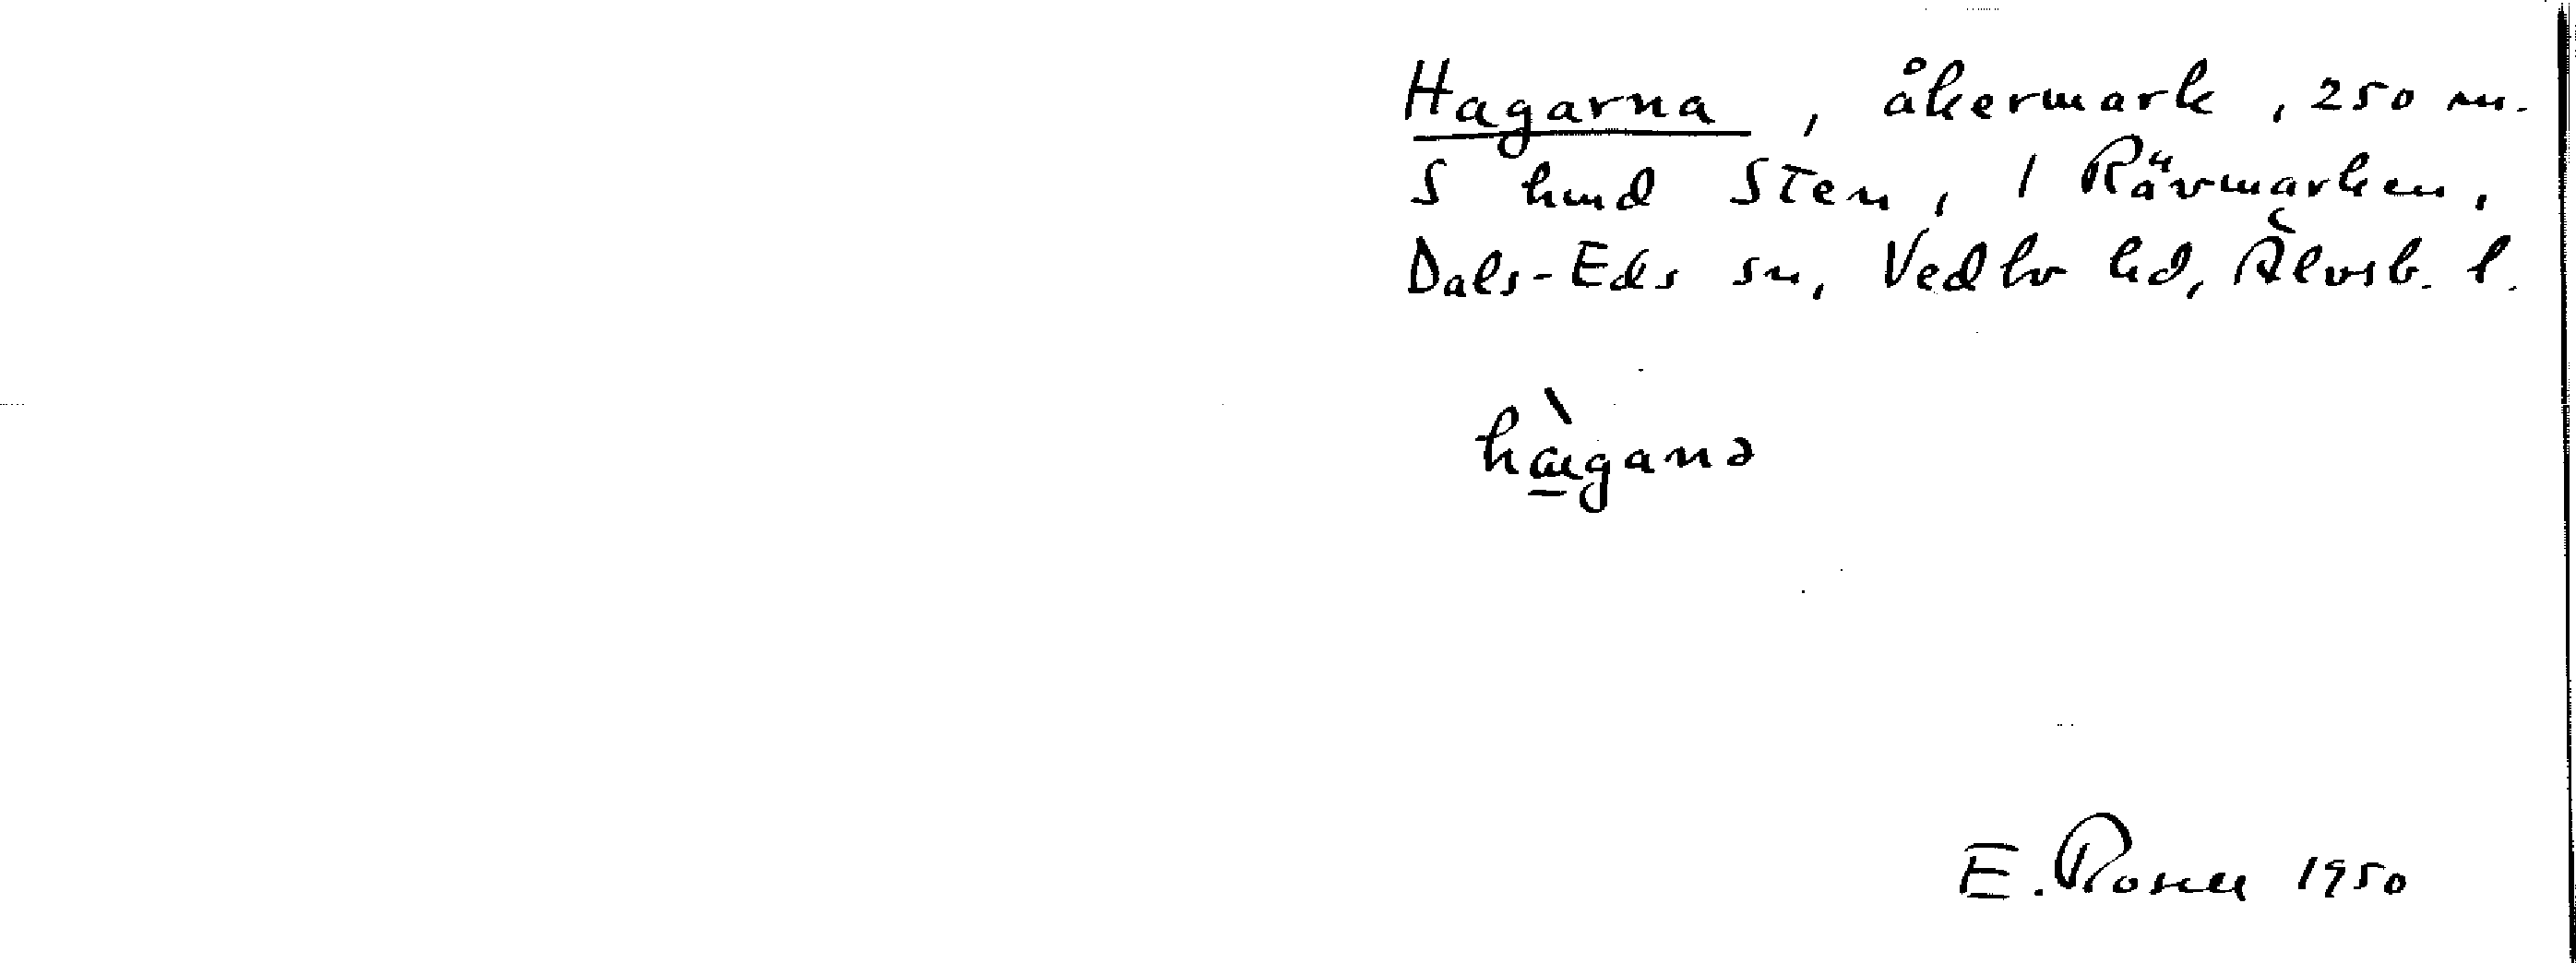 Hagarna, åkermark, 250 m.
S hmd Sten, 1 Rävmarken,
Dals-Eds sn, Vedbo hd, Älvsb. l.
hàgana
E. Rosell 1950